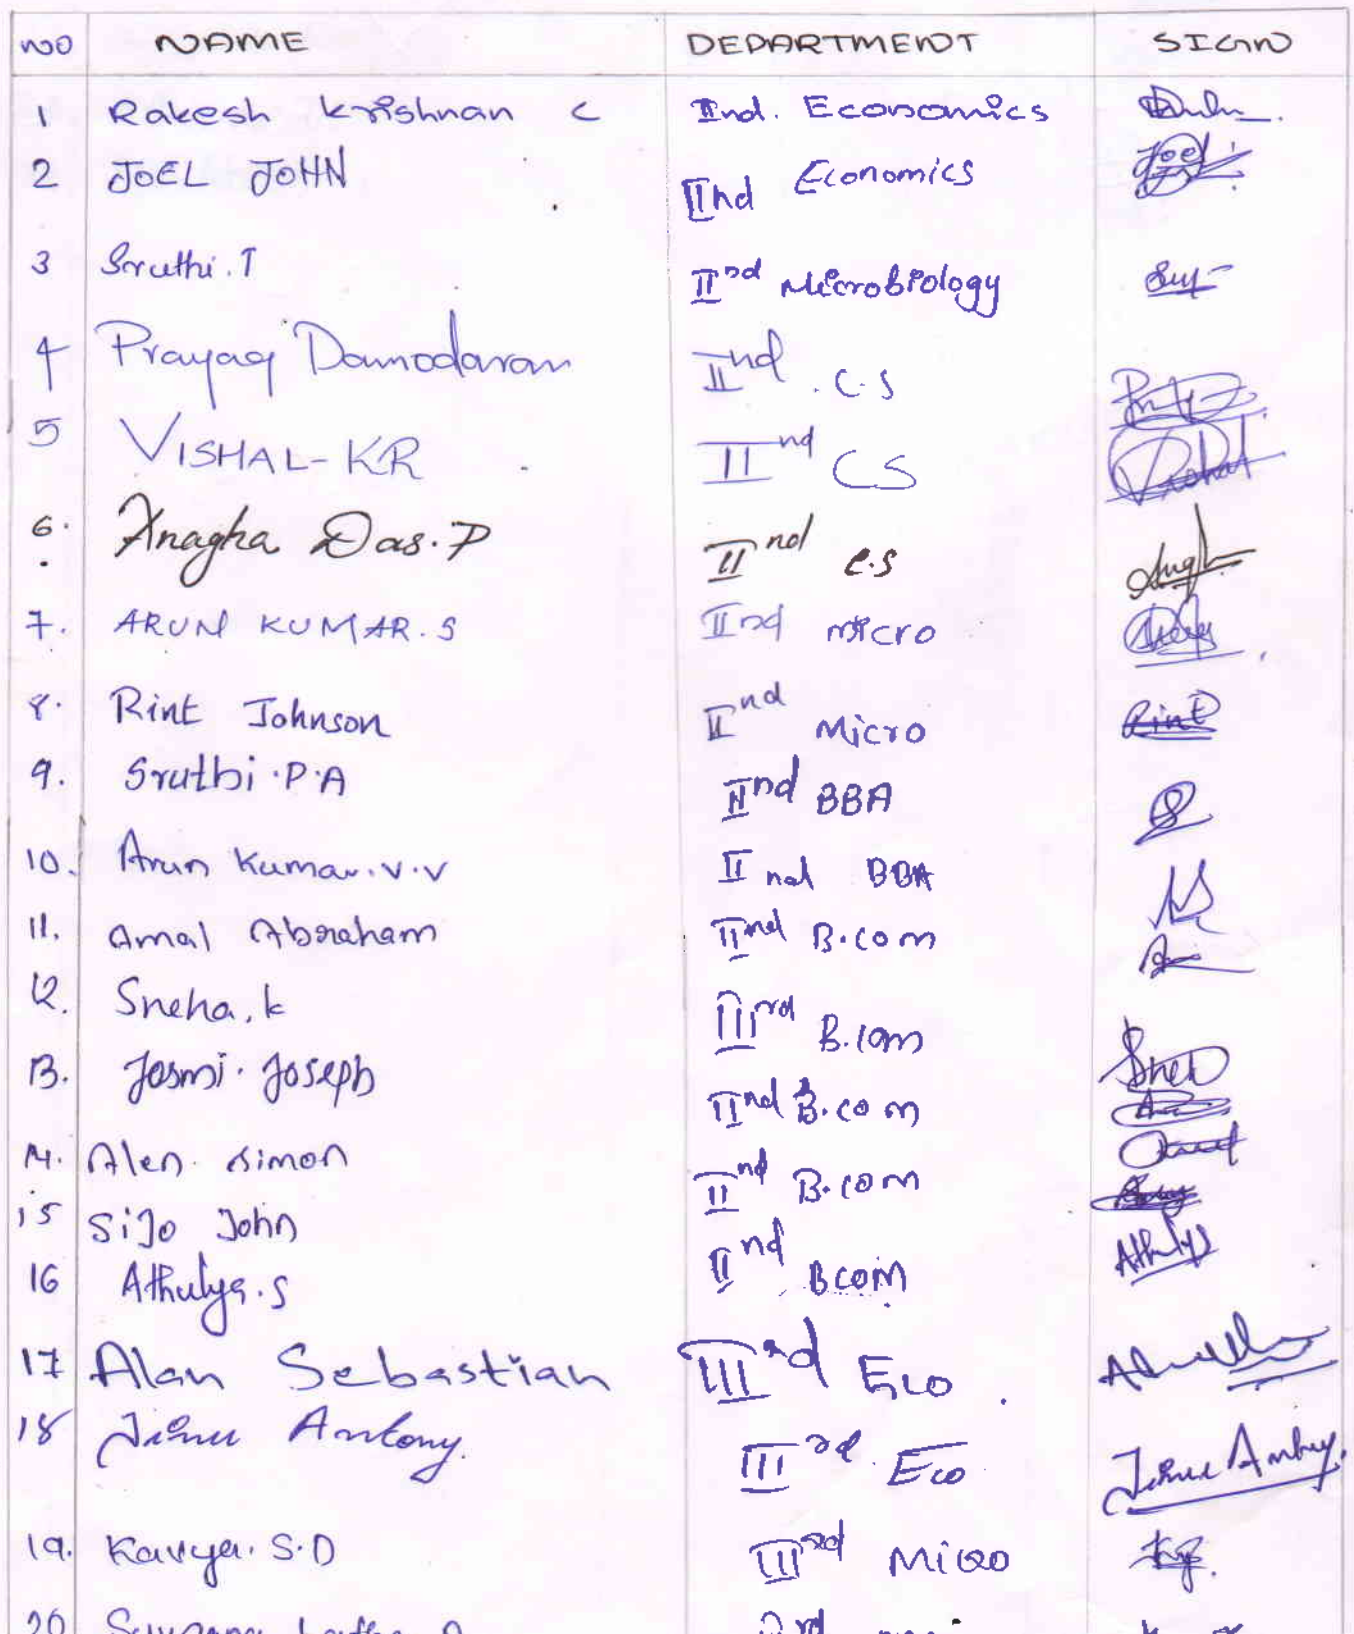 NO NAME DEPARTMENT SIGN
1 Rakesh Krishnan C IInd. Economics
2 JOEL JOHN IInd Economics Joel
3 Sruthi.T IInd Microbiology
4 Prayag Damodaran IInd .C.S
5 VISHAL-KR IInd CS Vishal
6. Anagha Das.P IInd C.S
7. ARUN KUMAR.S IInd micro
8. Rint Johnson IInd Micro Rint
9. Sruthi.P.A IInd BBA
10. Arun Kumar.V.V II nd BBA
11. Amal Abraham IInd B.com
12. Sneha.k IIIrd B.com Sneh
13. Josmi.Joseph IInd B.com
14. Alen. Simon IInd B.com
15 SiJo John IInd Bcom
16 Athulya.S Athulya
17 Alan Sebastian IIIrd Eco
18 Jinu Antony. IIIrd Eco Jinu Antony.
19. Kavya.S.D IIIrd Micro
20